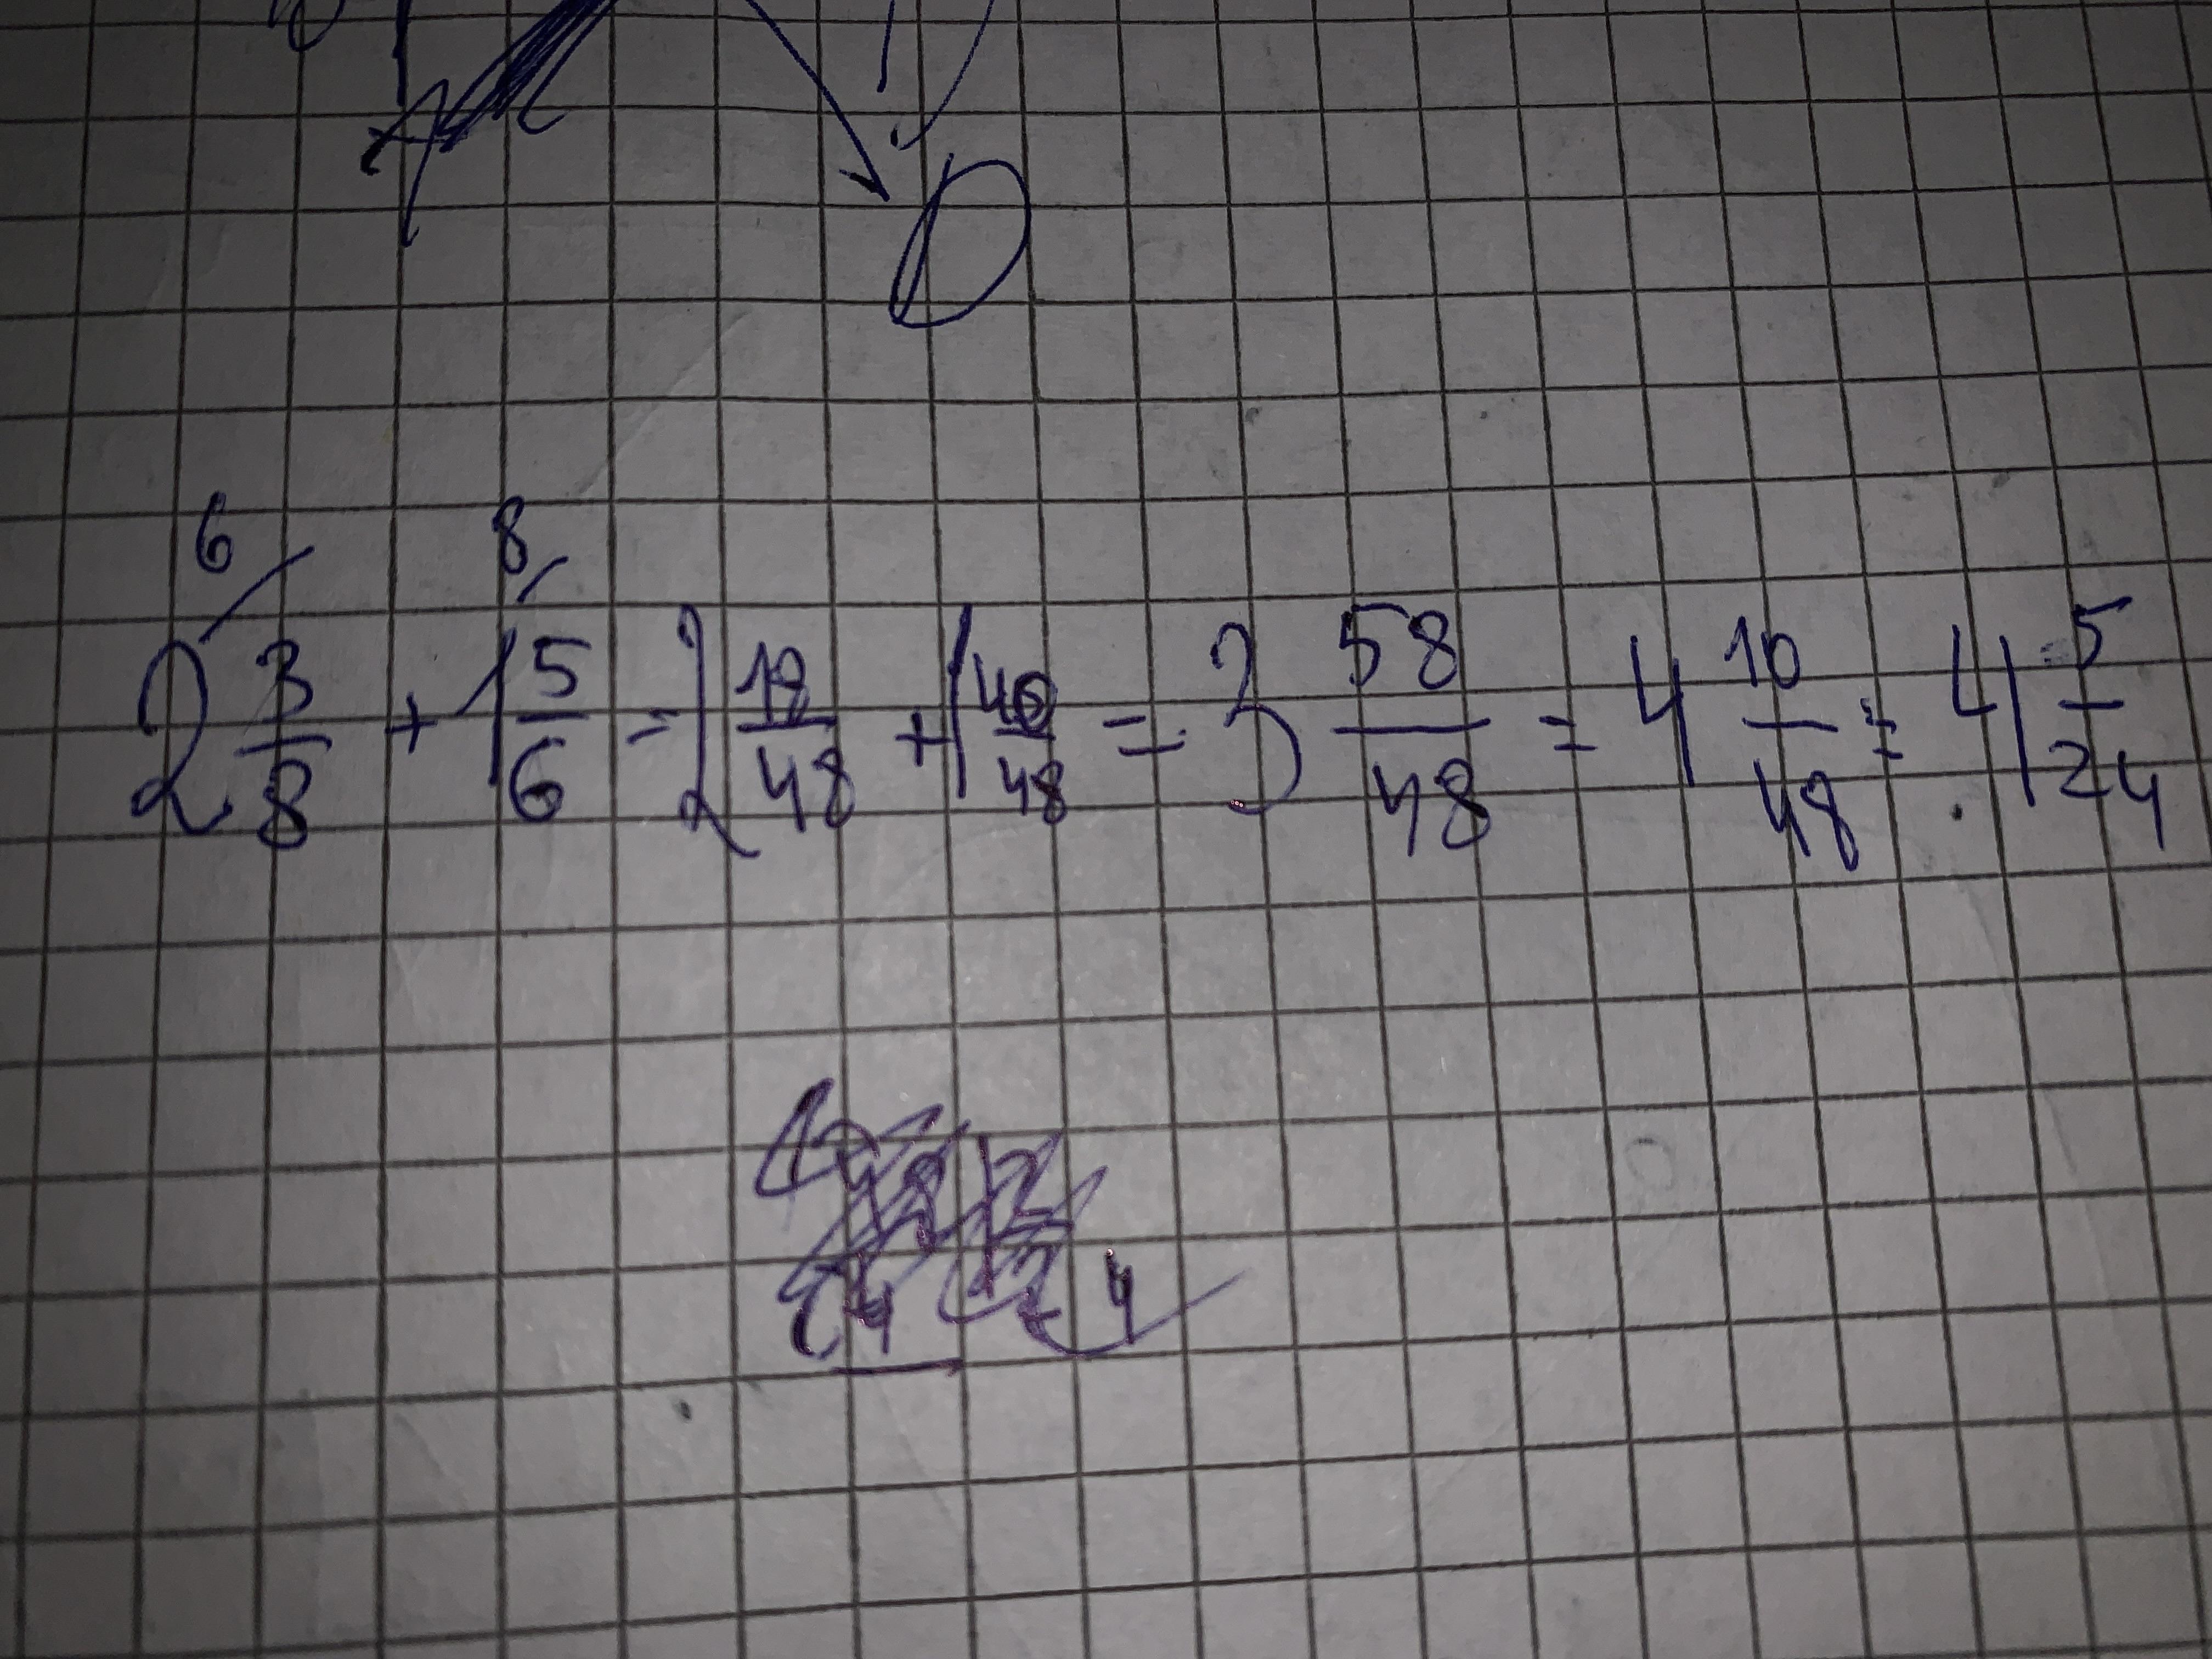 6 8
2 3/8 + 1 5/6 = 2 18/48 + 1 40/48 = 3 58/48 = 4 10/48 = 4 5/24
4